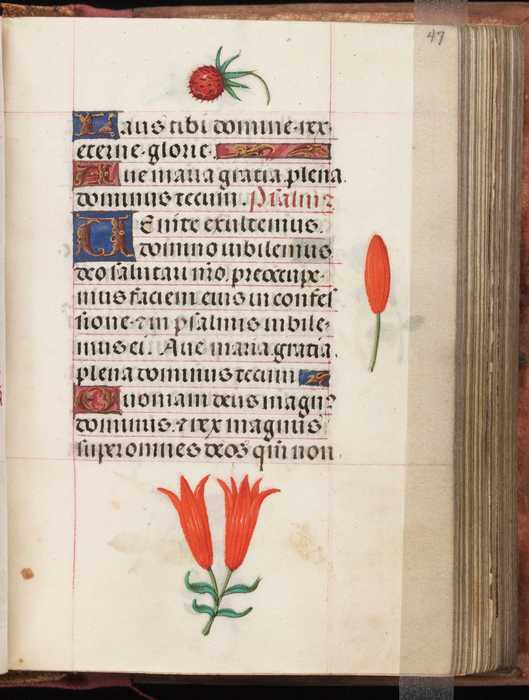 47
Laus tibi domine rex
eterne glorie.
Aue maria gratia plena
dominus tecum. Psalmꝰ
Uenite exultemus
domino iubilemus
deo salutari nr̄o, preoccupe-
mus faciem eius in confes
sione et in psalmis iubile-
mus ei. Aue maria gratia
plena dominus tecum
Quoniam deus magnꝰ
dominus. et rex magnus
super omnes deos qm̄ non